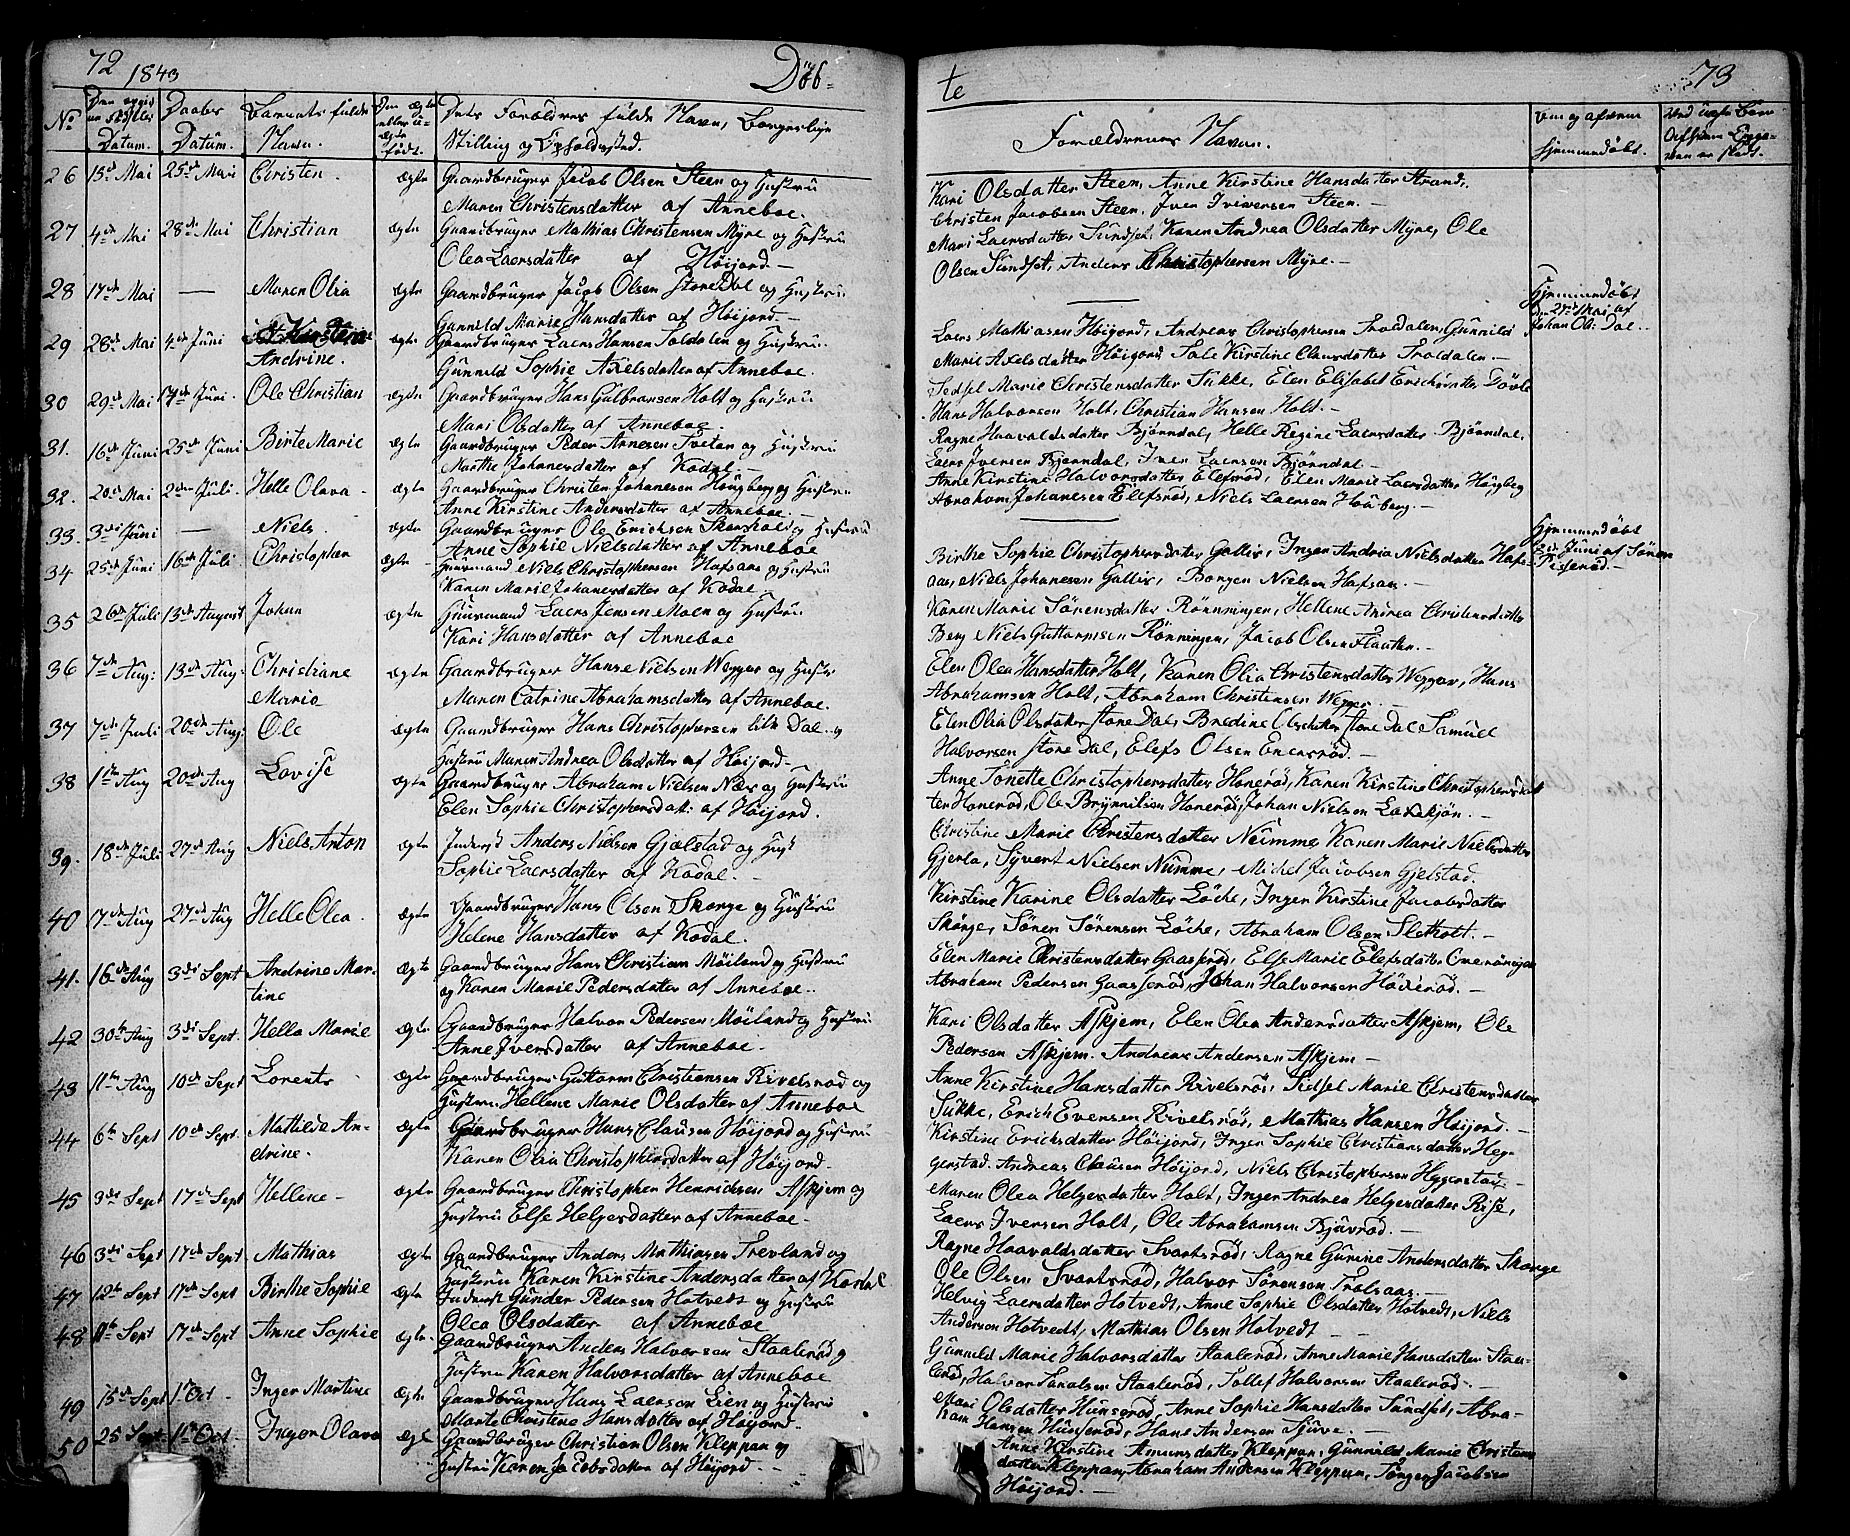 72 1843 Døb-
No Datum. Daabes Datum. Barnets fulde Navn. Den ægte eller u-ægte født. Dets Forældres fulde Navn, Borgerlige Stilling og Opholdssted.
26 15de Mai 25de Mai Christen. ægte Gaardbruger Jacob Olsen Steen og Hustru
Maren Christensdatter af Anneboe.
27 4de Mai 28de Mai Christian ægte Gaardbruger Mathias Christensen Myre og Hustru
Olea Laersdatter af Høijord.-
28 17de Mai — Maren Olia ægte Gaardbruger Jacob Olsen StoreDal og Hustru
Gunnild Marie Hansdatter af Høijord.-
29 28de Mai 4de Juni Andrine. ægte Gaardbruger Laers Hansen Toldalen og Hustru.
Gunnild Sophie Axelsdatter af Anneboe.
30 29de Mai Juni. Ole Christian ægte Gaardbruger Hans Gulbransen Holt og Hustru
Mari Olsdatter af Anneboe.
31. 16de Juni 25de Juni Birte Marie ægte Gaardbruger Peder Arnesen Tveitan og Hustru
Marthe Johanesdatter af Kodal.-
32. 20de Mai 2den Juli. Helle Olava - ægte Gaardbruger Christen Johanesen Hougberg og Hustru
Anne Kirstine Andersdatter af Anneboe.-
33. 3die Juni — Niels. ægte Gaardbruger Ole Ericksen og Hustru
Anne Sophie Nielsdatter af Anneboe
34 25de Juni 16de Juli Christopher ægte - Huusmand Niels Christophersen Hafsaas og Hustru
Karen Marie Johanesdatter af Kodal.
35 26de Juli 13de August Johan ægte Huusmand Laers Jensen Moen og Hustru
Kari Hansdatter af Anneboe
36 7de Aug: 13de Aug: Christiane ægte Gaardbruger Hanse Nielsen Wegger og Hustru
Maria Maren Catrine Abrahamsdatter af Anneboe.
37 7de Juli 20de Aug: Ole ægte Gaardbruger Hans Christophersen lille Dal og
Hustru Maren Andrea Olsdatter af Høijord.-
38 1ste Aug 20de Aug Lovise ægte Gaardbruger Abraham Nielsen Nær og Hustru
Elen Sophie Christophersdatt: af Høijord.
39. 18de Juli 27de Aug Niels Anton ægte Inderst Anders Nielsen Gjelstad og Hust
Sophie Laersdatter af Kodal.-
40 17de Aug 27de Aug Helle Olea. ægte Gaardbruger Hans Olsen Skorge og Hustru
Helene Hansdatter af Kodal.
41. 16de Aug 3die Sept Andrine Mar- ægte Gaardbruger Hans Christian Møiland og Hustru
tine og Karen Marie Pedersdatter af Anneboe.
42 30te Aug 3die Sept. Hella Marie ægte Gaardbruger Halvor Pedersen Møiland og Hustru
Anne Iversdatter af Anneboe.
43 11te Aug 10de Sept Lorents - ægte Gaardbruger Guttorm Christiansen Rivelsrød og
Hustru Hellene Marie Olsdatter af Anneboe
44 6te Sept 10de Sept. Mathilde An- ægte Gaardbruger Hans Clausen Høijord og Hustru
drine. Karen Olia Christophersdatter af Høijord.
45 3die Sept 17de Sept Hellene - ægte Gaardbruger Christopher Henrichsen Askjem og
Hustru Else Helgersdatter af Anneboe-
46 3die Sept 17de Sept Mathias ægte Gaardbruger Anders Mathiasen Trevland og
Hustru Karen Kirstine Andersdatter af Kodal
47 12te Sept 17de Sept Birthe Sophie ægte Inderst Gunder Pedersen Hotvedt og Hustru
Olea Olsdatter af Anneboe
48 11te Sept 17de Sept Anne Sophie ægte. Gaardbruger Anders Halvorsen Staalerød og
Hustru Karen Halvorsdatter af Anneboe
49 15de Sept 1ste Oct - Inger Martine ægte Gaardbruger Hans Laersen Lien og Hustru
Marte Christene Hansdatter af Høijord.
50 25 Sept 1ste Oct. Inger Olava ægt Gaardbruger Christian Olsen Kleppan og
Hustru Karen Jacobsdatter af Høijord.-
te 73
Forældrenes Navn. Hjemmedøbt.
Kari Olsdatter Steen, Anne Kirstine Hansdatter Strand,
Christen Jacobsen Steen, Iver Iversen Steen.-
Mari Laersdatter Sundset, Karen Andrea Olsdatter Myre, Ole
Olsen Sundset, Anders Christophersen Myre.-
— Hjemmedøbt den 27de Mai af Johan Ols: Dal.
Laers Mathiasen Høigord, Andreas Christophersen Troldalen, Gunnild
Marie Axelsdatter Høigord, Tale Kirstine Clausdatter Troldalen.-
Sedsel Marie Christensdatter Sukke, Elen Elisabet
Hans Halvorsen Holt, Christian Hansen Holt.-
Ragne Haavaldsdatter Bjørndal, Helle Regine Laersdatter Bjørndal,
Laers Iversen Bjørndal, Iver Laersen Bjørndal.-
Anne Kirstine Halvorsdatter Elefsrød, Elen Marie Laersdatter Høgberg
Abraham Johanesen Elefsrød, Niels Laersen Houberg.-
— Hjemmedøbt Juni af Søren
Birthe Sophie Christophersdatter Gallis, Inger Andria Nielsdatter Hafs-
aas, Niels Johanesen Gallis, Borger Nielsen Hafsaas.-
Karen Marie Sørensdatter Rønningen, Hellene Andrea Christensdatter
Berg Niels Guttormsen Rønningen, Jacob Olsen Flaatten.-
Elen Olea Hansdatter Holt, Karen Olia Christensdatter Wegger, Hans
Abrahamsen Holt, Abraham Christensen Wegger.-
Elen Olia Olsdatter Store Dal, Bredine Olsdatter Store Dal Samuel
Halvorsen Store Dal, Elefs Olsen Enersrød.-
Anne Tonette Christophersdatter Honerød, Karen Kirstine Christophersdat
ter Honerød, Ole Brynnilsen Honerød, Johan Nielsen
Christine Marie Christensdatter Numme Karen Marie Nielsdatter
Gjerla, Syvert Nielsen Numme, Michel Jacobsen Gjelstad.
Kirstine Karine Olsdatter Løche, Inger Kirstine Jacobsdatter
Skorge, Søren Sørensen Løche, Abraham Olsen Sletholt.-
Elen Marie Christensdatter Gaasserød, Else Marie Elefsdatter
Abraham Pedersen Gaasserød, Johan Halvorsen
Kari Olsdatter Askjem, Elen Olea Andersdatter Askjem, Ole
Pedersen Askjem. Andreas Andersen Askjem -
Anne Kirstine Hansdatter Rivelsrød, Sidsel Marie Christensdatter
Sukke, Erich Evensen Rivelsrød, Mathias Hansen Høijord.-
Kirstine Ericksdatter Høijord, Inger Sophie Christiansdatter Heg-
gerstad. Andreas Clausen Høijord, Niels Christophersen Heggerstad.-
Maren Olea Helgersdatter Holt, Inger Andrea Helgersdatter Rise,
Laers Iversen Holt, Ole Abrahamsen Bjuerød.-
Ragne Haavaldsdatter Svartsrød, Ragne Gurine Andersdatter Skorge
Ole Olsen Svartsrød, Halvor Sørensen Trolsaas.-
Helvig Laersdatter Hotvedt, Anne Sophie Olsdatter Hotvedt, Niels
Andersen Hotvedt, Mathias Olsen Hotvedt -
Gunnild Marie Halvorsdatter Staalerød, Anne Marie Hansdatter Staa-
lerød, Halvor Staalerød, Tollef Halvorsen Staalerød.-
Mari Olsdatter Hunserød, Anne Sophie Hansdatter Sundset, Abra-
ham Hansen Hunserød, Hans Andersen Sjuve.-
Anne Kirstine Amunsdatter Kleppan, Gunnild Marie Christens
datter Kleppan, Abraham Andersen Kleppan, Jacobsen
Høijord.-